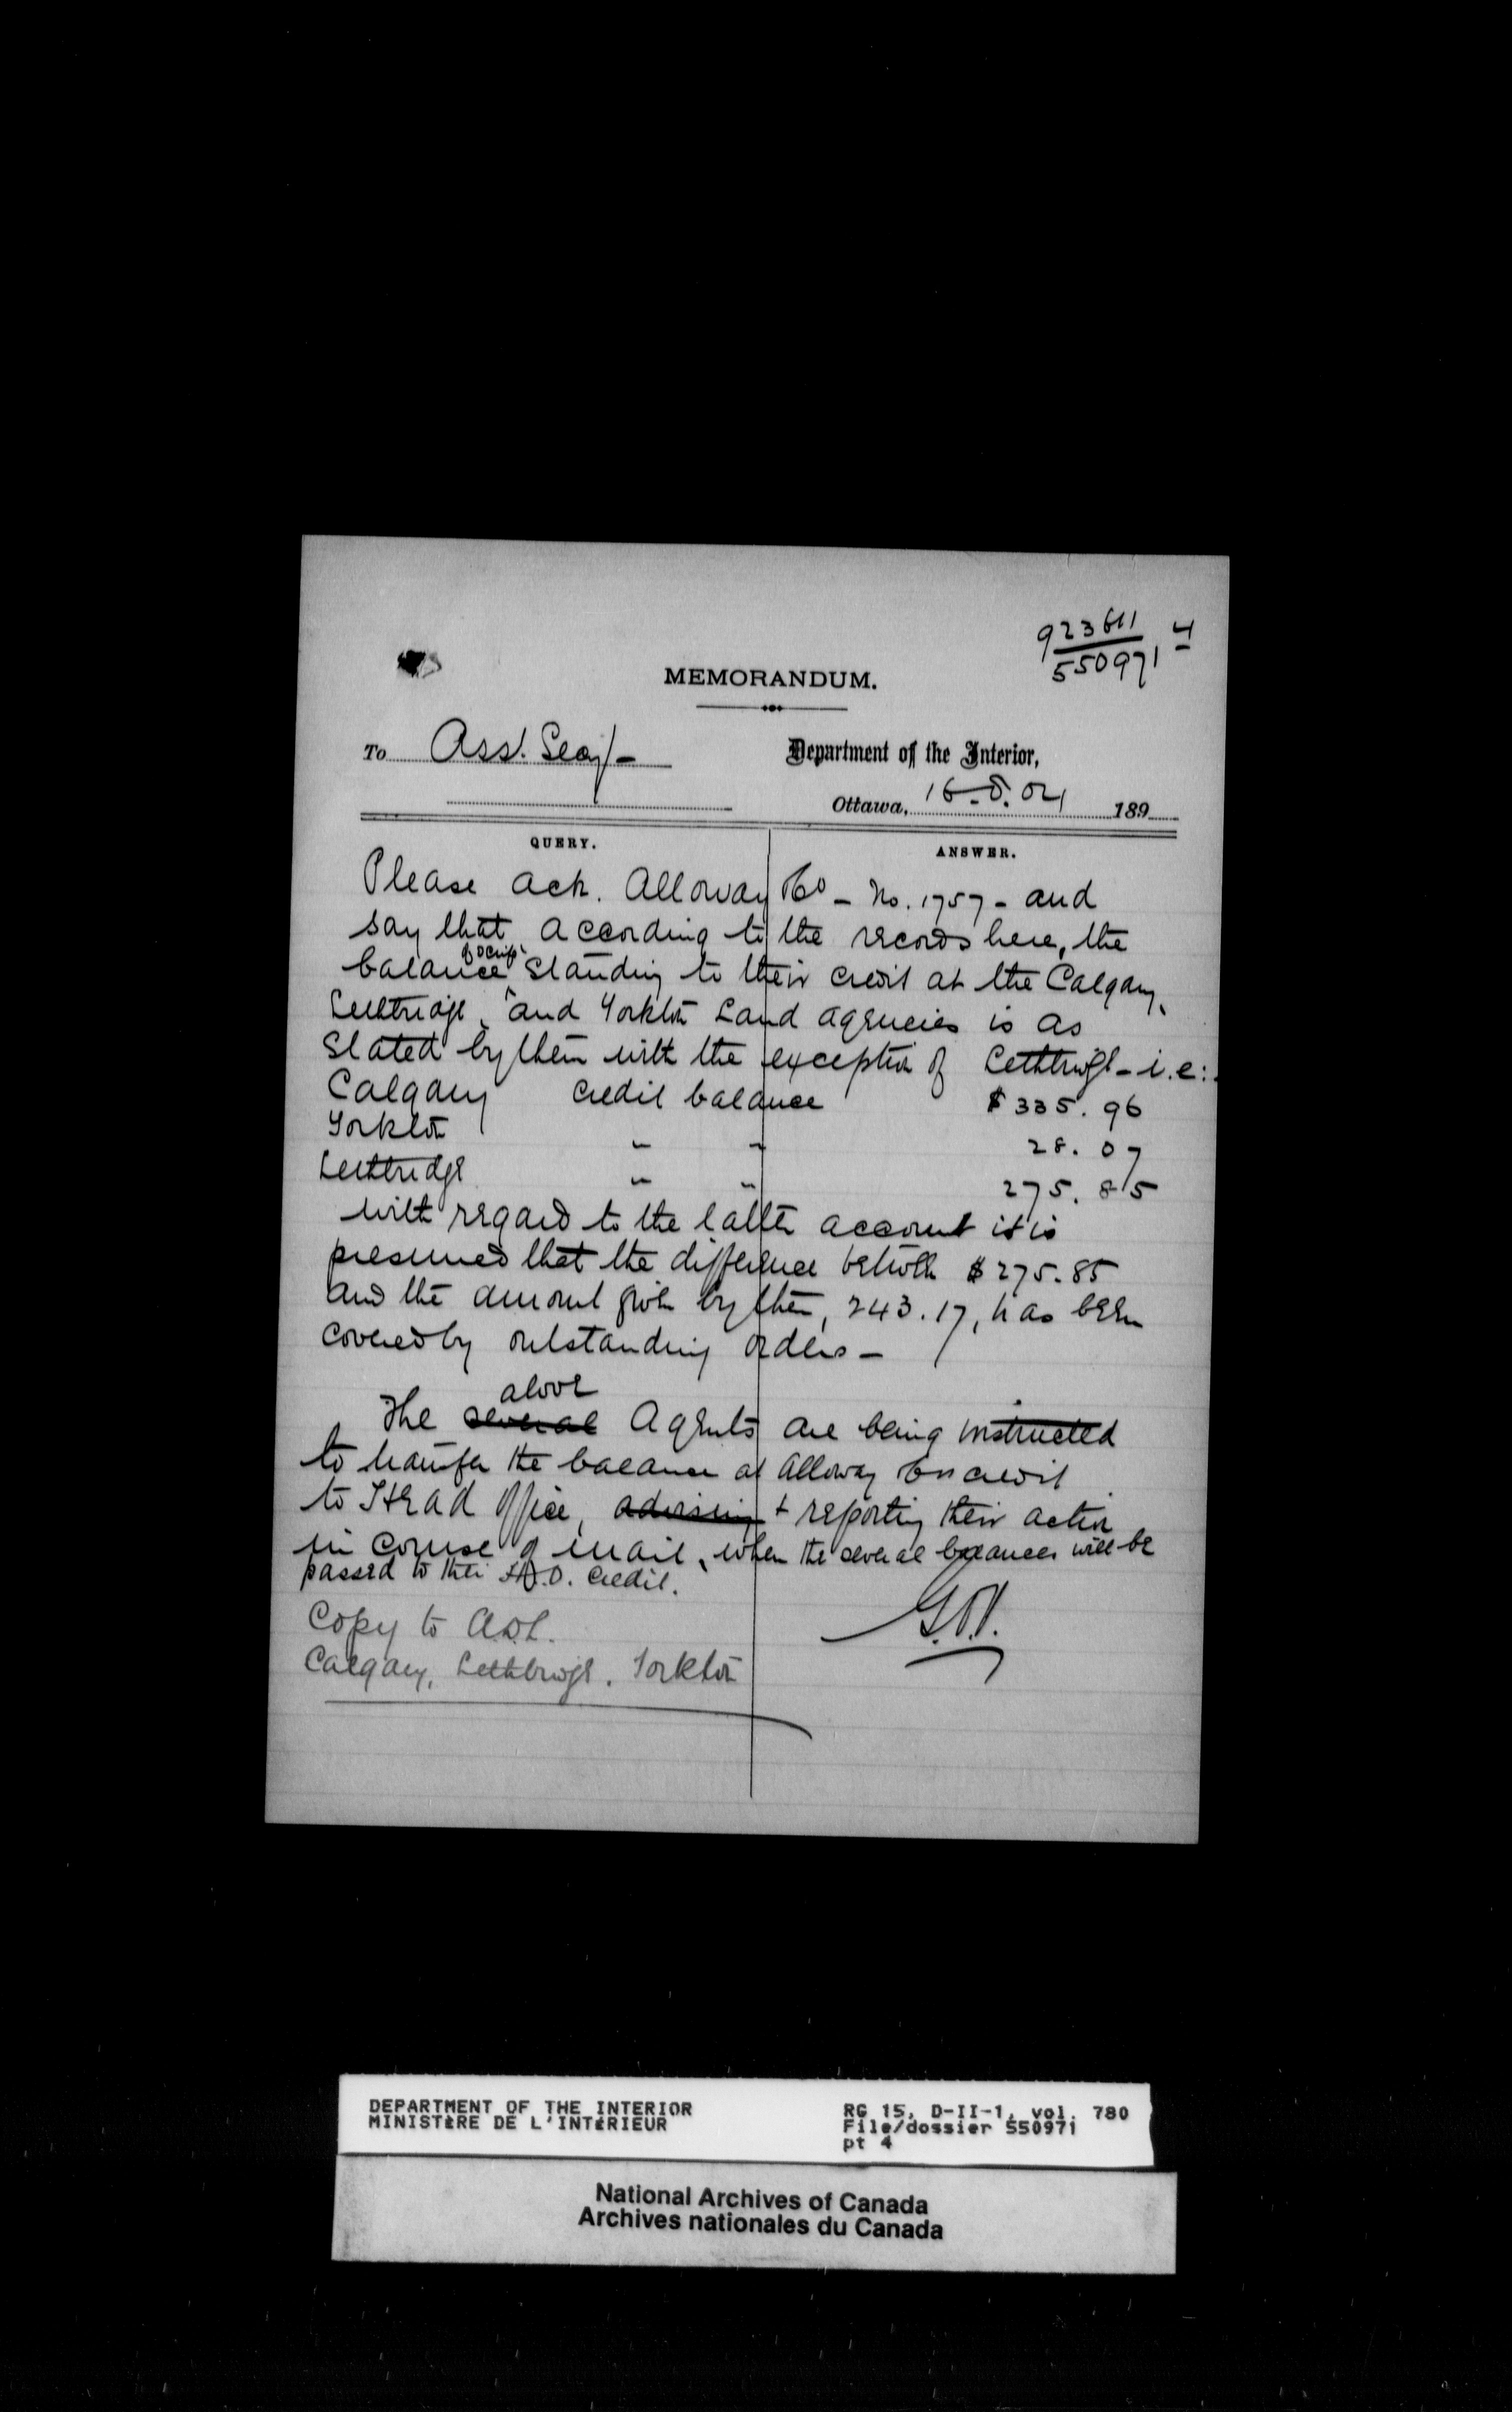 923611 4
550971
MEMORANDUM.
To Ass. Secy -
Department of the Interior,
Ottawa, 16.8.04 189
QUERY.
ANSWER.
Please ack. Alloway Co - No. 1757 - and
say that according to the records here, the
of scrip
balance standing to their credit at the Calgary,
Lethbridge, and Yorkton Land agencies is as
stated by them with the exception of Lethbridge - i.e:
Calgary Credit balance $335.96
Yorkton " " 28.07
Lethbridge " " 275.85
With regard to the latter account it is
presumed that the difference between $275.85
and the amount given by them, 243.17, has been
covered by outstanding orders -
above
The several Agents are being instructed
to transfer the balance at Alloway Co's credit
to Head Office, advising + reporting their action
in course of mail, when the several balances will be
passed to their H.O. Credit.
Copy to A.D.L.
Calgary, Lethbridge. Yorkton
DEPARTMENT OF THE INTERIOR
MINISTÈRE DE L'INTÉRIEUR
RG 15, D-II-1, vol. 780
File/dossier 550971
pt 4
National Archives of Canada
Archives nationales du Canada